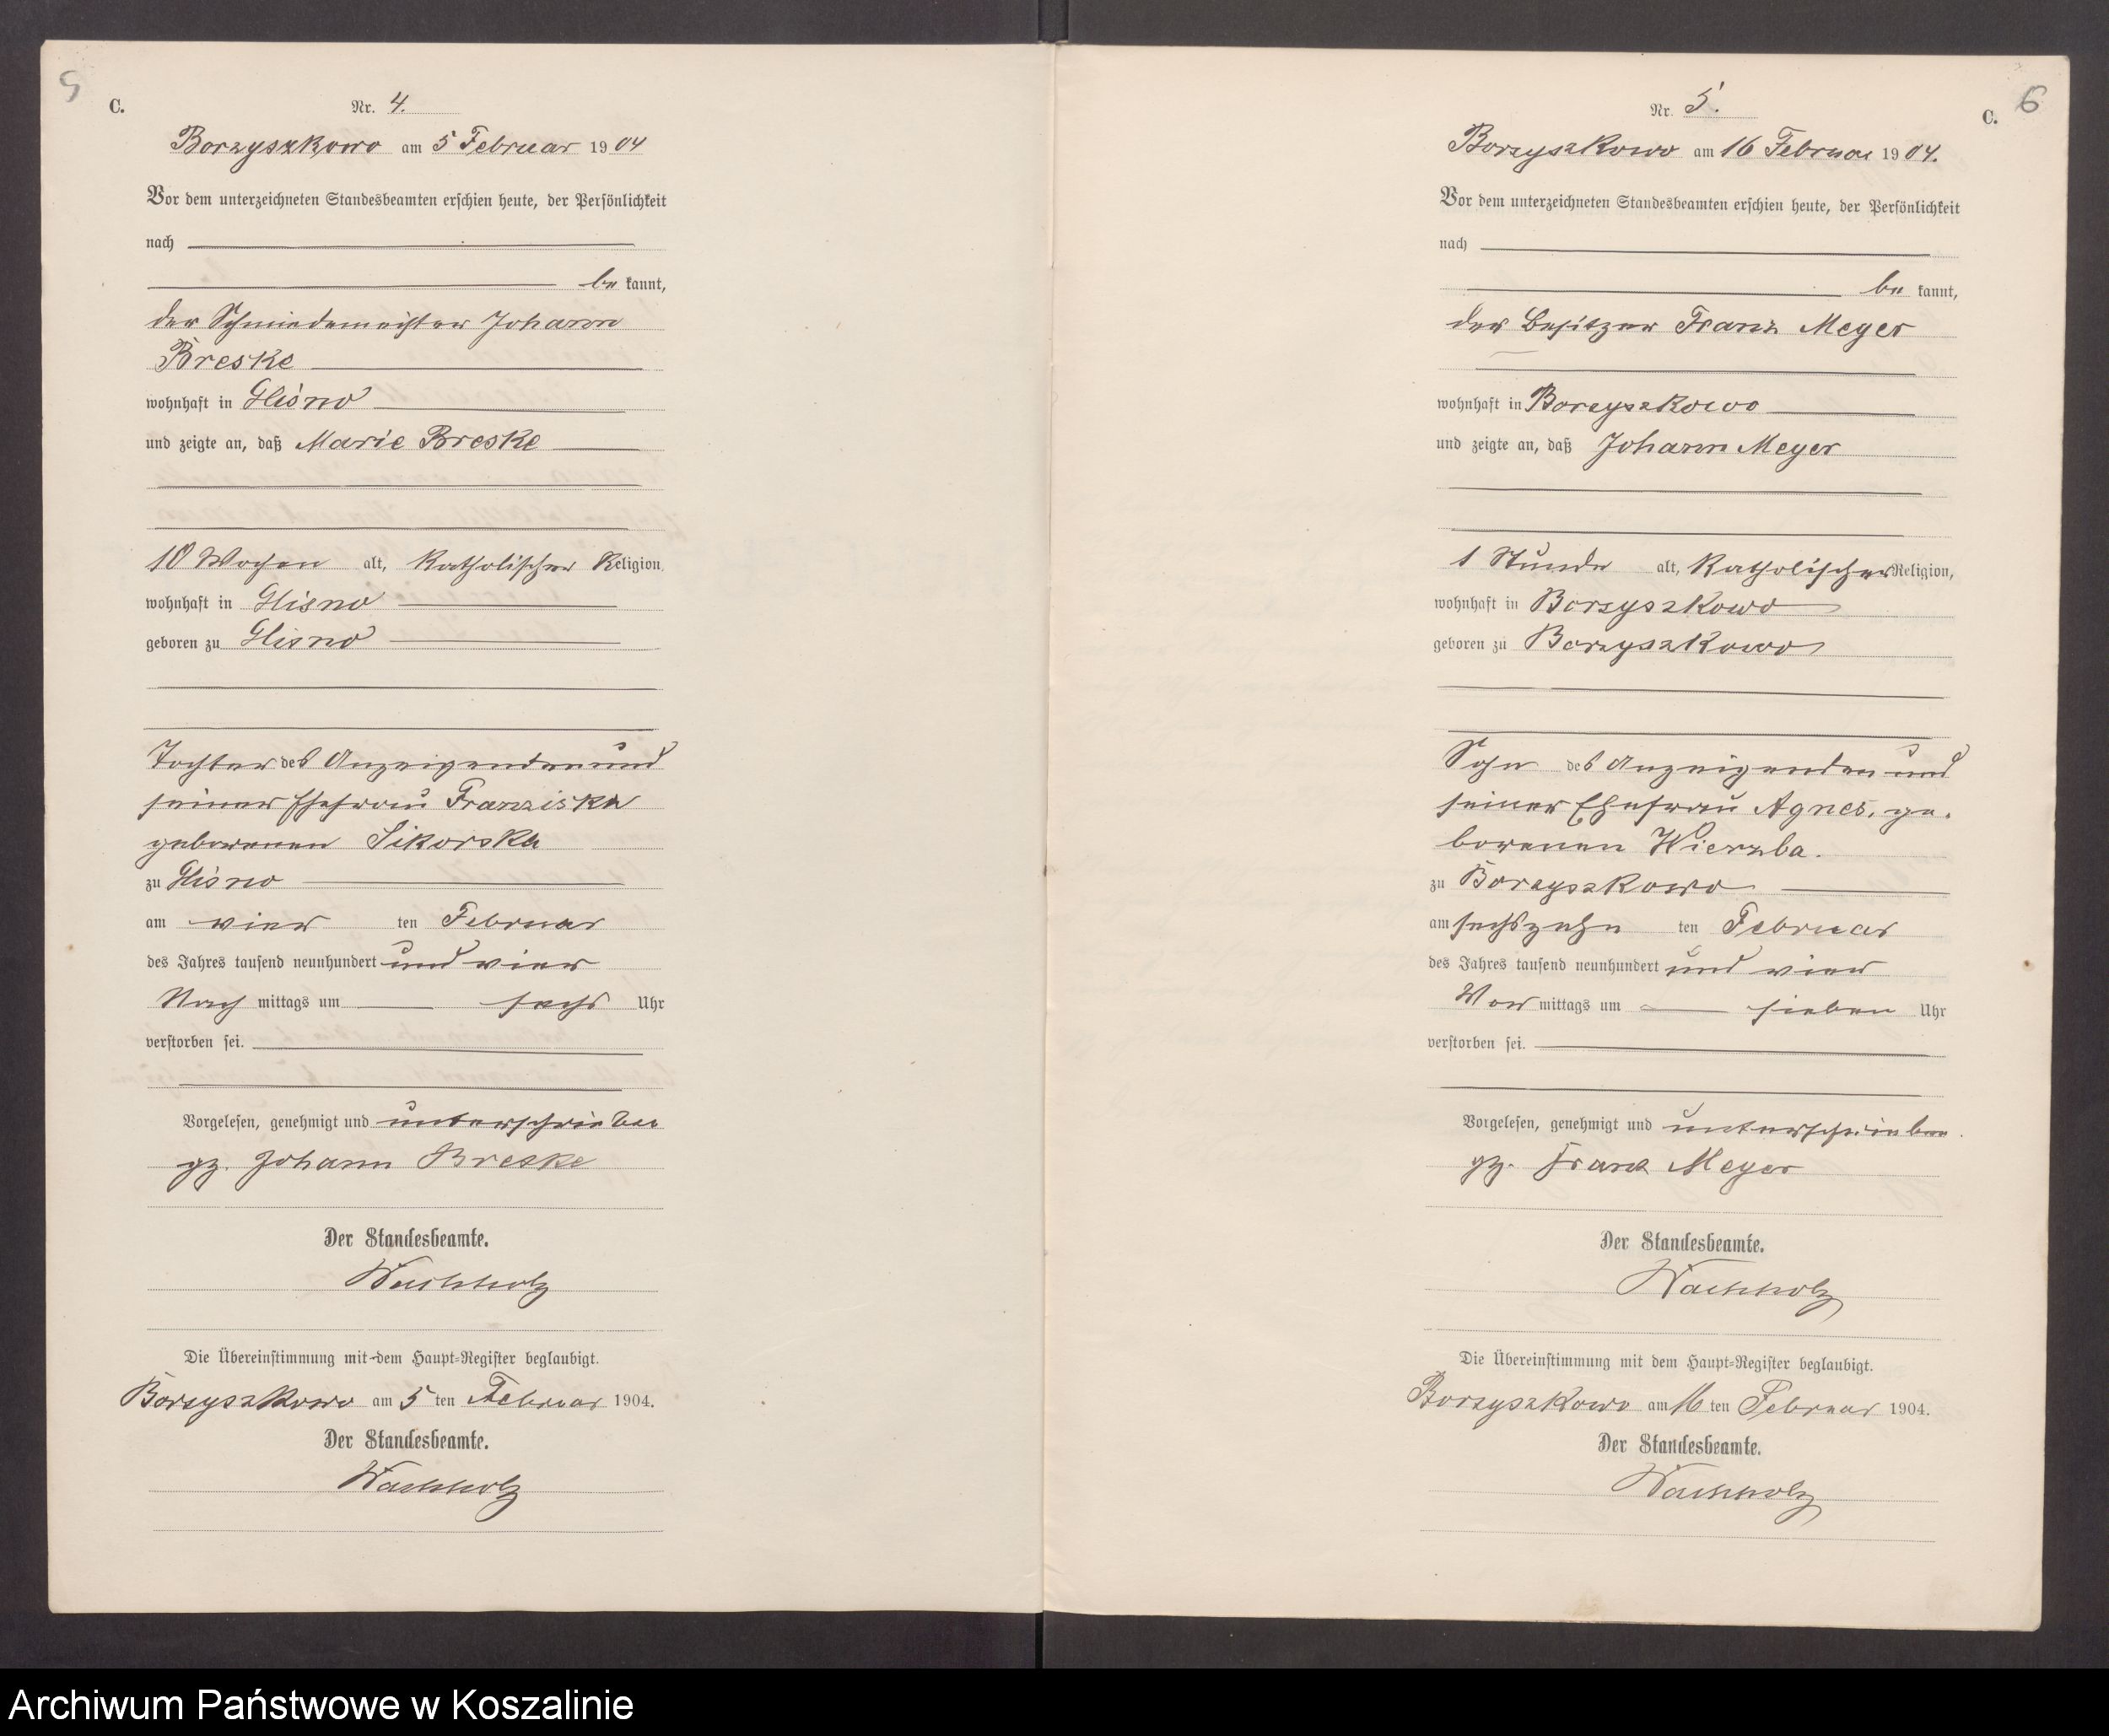 5
C.
Nr. 4.
Borzyszkowo am 5 Februar 1904
Vor dem unterzeichneten Standesbeamten erschien heute, der Persönlichkeit
nach
be kannt,
der Schmiedemeister Johann
Breske
wohnhaft in Glisno
und zeigte an, daß Marie Breske
10 Wochen alt, katholischer Religion,
wohnhaft in Glisno
geboren zu Glisno
Tochter des Anzeigenden und
seiner Ehefrau Franziska
geborenen Sikorska
zu Glisno
am vier ten Februar
des Jahres tausend neunhundert und vier
Nach mittags um sechs Uhr
verstorben sei.
Vorgelesen, genehmigt und unterschrieben
gz. Johann Breske
Der Standesbeamte.
Wachholz
Die Übereinstimmung mit dem Haupt-Register beglaubigt.
Borzyszkowo am 5 ten Februar 1904.
Der Standesbeamte.
Wachholz
6
C.
Nr. 5.
Borzyszkowo am 16 Februar 1904.
Vor dem unterzeichneten Standesbeamten erschien heute, der Persönlichkeit
nach
be kannt,
der Besitzer Franz Meyer
wohnhaft in Borzyszkowo
und zeigte an, daß Johann Meyer
1 Stunde alt, katholischer Religion,
wohnhaft in Borzyszkowo
geboren zu Borzyszkowo
Sohn des Anzeigenden und
seiner Ehefrau Agnes, ge-
borenen Wierzba.
zu Borzyszkowo
am sechszehn ten Februar
des Jahres tausend neunhundert und vier
Vor mittags um sieben Uhr
verstorben sei.
Vorgelesen, genehmigt und unterschrieben.
gz. Franz Meyer
Der Standesbeamte.
Wachholz
Die Übereinstimmung mit dem Haupt-Register beglaubigt.
Borzyszkowo am 16 ten Februar 1904.
Der Standesbeamte.
Wachholz
Archiwum Państwowe w Koszalinie